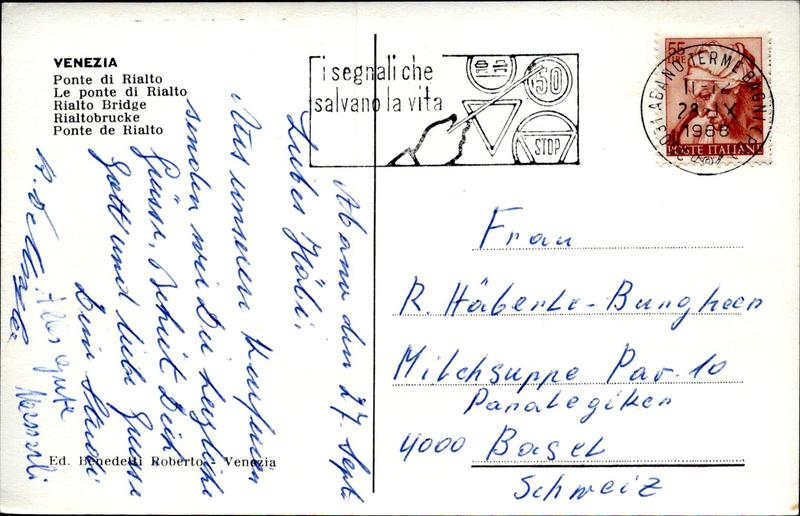 VENEZIA
Ponte di Rialto
Le ponte di Rialto
Rialto Bridge
Rialtobrucke
Ponte de Rialto
i segnali che
salvano la vita
50
STOP
55
LIRE
POSTE ITALIANE
ABANO TERME
11-12
28. IX
1968
Abano den 27. Sept.
Liebes Häbi.
Aus unseren Kurferien
senden wir Dir herzliche
Grüsse. Behüt Dich
Gott und liebe Grüsse
Dein
Alles gute
Frau
R. Häberle-Bungheer
Milchsuppe Par. 10
4000 Basel
Schweiz
Ed. Benedetti Roberto - Venezia